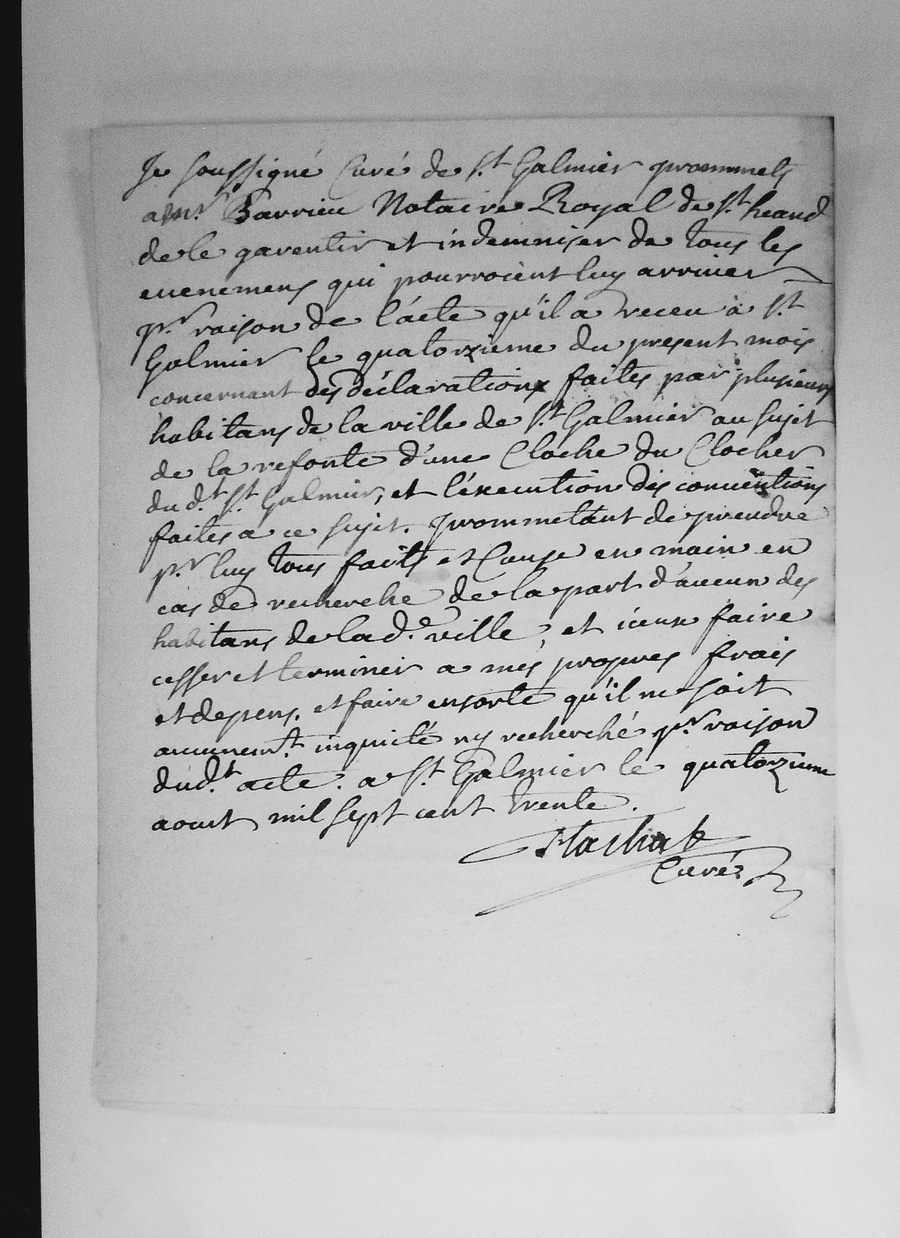 Je soussigné Curé de St. Galmier prommets
a mr. Barrieu Notaire Royal de St. heand
de le garentir et indemniser de tous les
evenemens qui pourroient luy arriver
pr. raison de l'acte qu'il a receu à St.
Galmier le quatorzieme du present mois
concernant des déclarations faites par plusieurs
habitans de la ville de St. Galmier au sujet
de la refonte d'une Cloche du Clocher
du dt. St. Galmier, et l'éxecution des conventions
faites a ce sujet. prommetant de prendre
pr. luy tous faits et Cause en main en
cas de recherche de la part d'aucun des
habitans de lade. ville, et iceux faire
cesser et terminer a mes propres frais
et depens, et faire ensorte qu'il ne soit
aucunemt. inquieté ny recherché pr. raison
dudt. acte. a St. Galmier le quatorzieme
aoust mil sept cent trente.
Curé